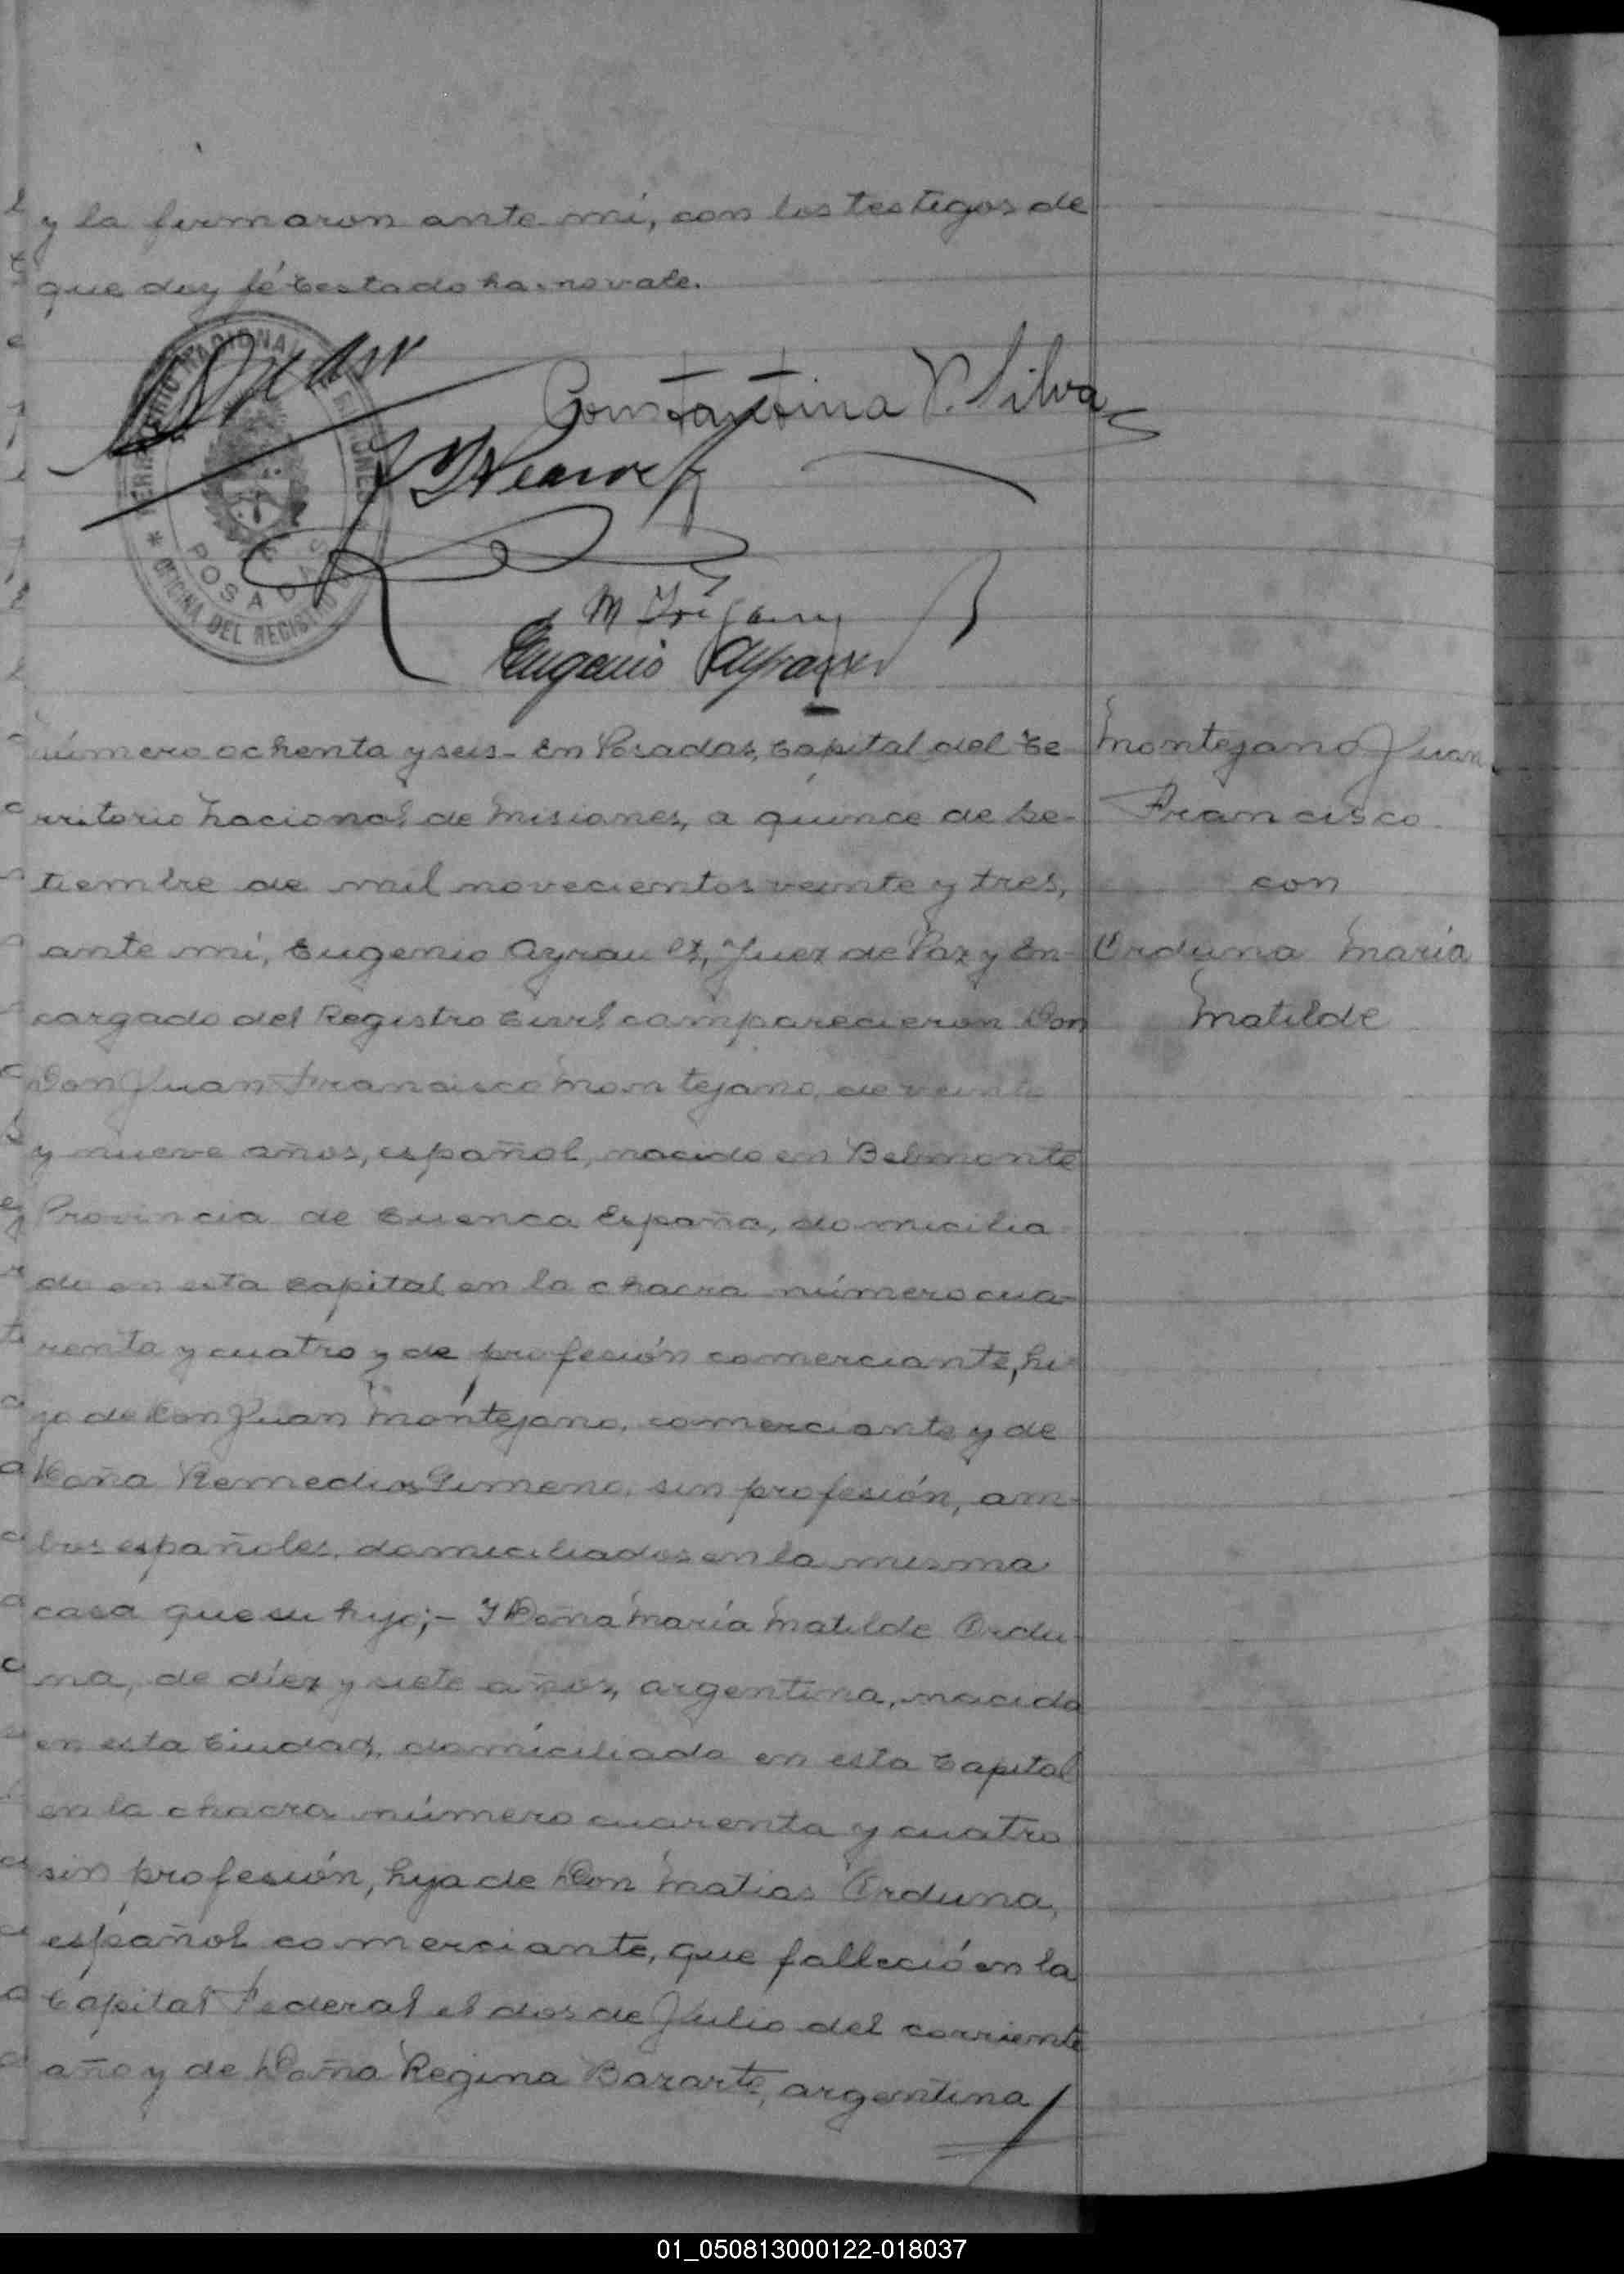 y la firmaron ante mí, con los testigos de
que doy fé testado ha. no vale.
TERRITORIO NACIONAL DE MISIONES
POSADAS
* OFICINA DEL REGISTRO
Constantina V. Silva
Eugenio Ayrault
Número ochenta y seis - En Posadas, Capital del Te-
rritorio Nacional de Misiones, a quince de Se-
tiembre de mil novecientos veinte y tres,
ante mí, Eugenio Ayrault, Juez de Paz y En-
cargado del Registro Civil comparecieron Don
Don Juan Francisco Montejano, de veinte
y nueve años, español, nacido en Belmonte
Provincia de Cuenca España, domicilia
do en esta Capital en la chacra número cua-
renta y cuatro y de profesión comerciante, hi-
jo de Don Juan Montejano, comerciante y de
Doña Remedios Gimeno, sin profesión, am-
bos españoles, domiciliados en la misma
casa que su hijo;- Y Doña María Matilde Ordu-
na, de diez y siete años, argentina, nacida
en esta Ciudad, domiciliada en esta Capital
en la chacra número cuarenta y cuatro
sin profesión, hija de Don Matias Orduna,
español comerciante, que falleció en la
Capital Federal el dos de Julio del corriente
año y de Doña Regina Bazarte, argentina
Montejano Juan
Francisco
con
Orduna María
Matilde
01_050813000122-018037